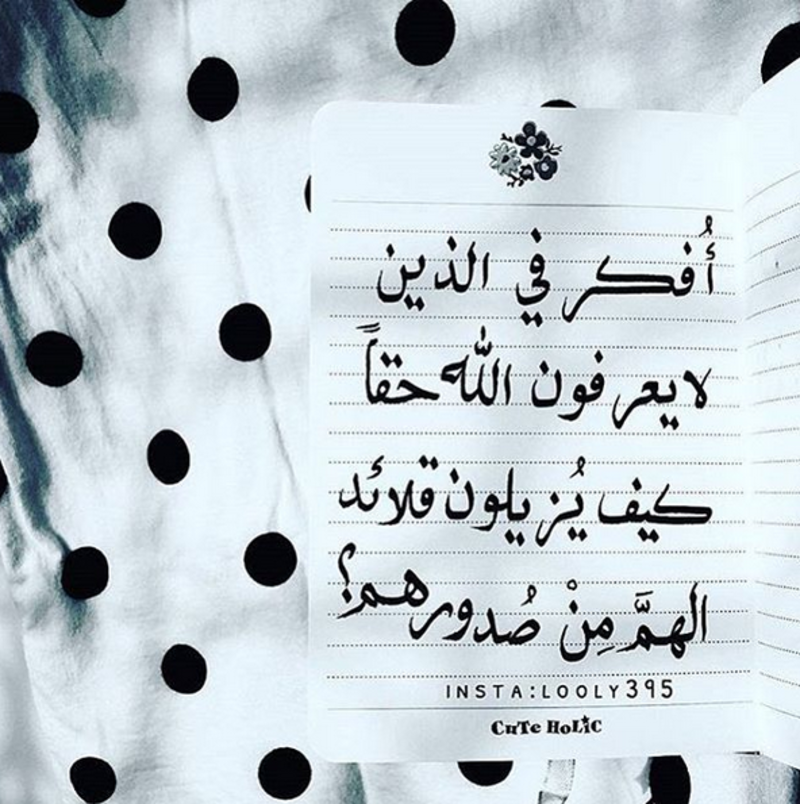 أُفكر في الذين
لايعرفون الله حقاً
كيف يُزيلون قلائد
الهمَّ مِنْ صُدورهم؟
INSTA:LOOLY395
CuTe HoLiC